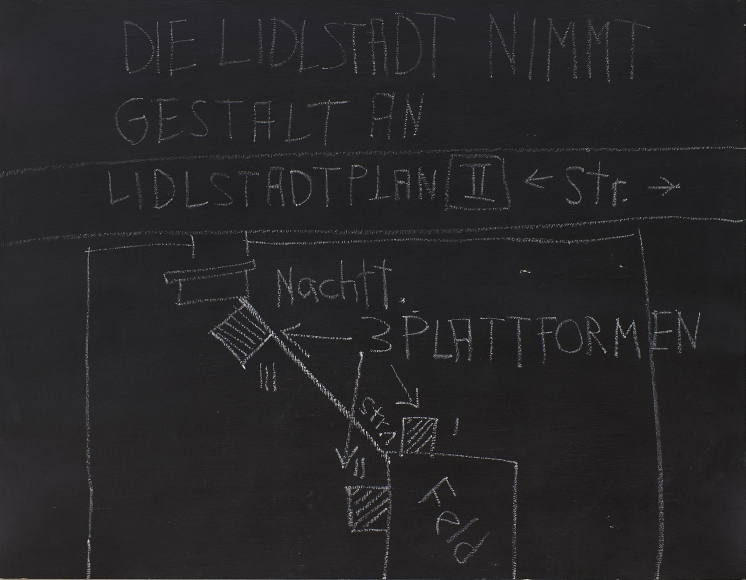 DIE LIDLSTADT NIMMT
GESTALT AN
LIDLSTADTPLAN II ← Str. →
Nachtl.
3 PLATTFORMEN
III
Str.
I
II
Feld